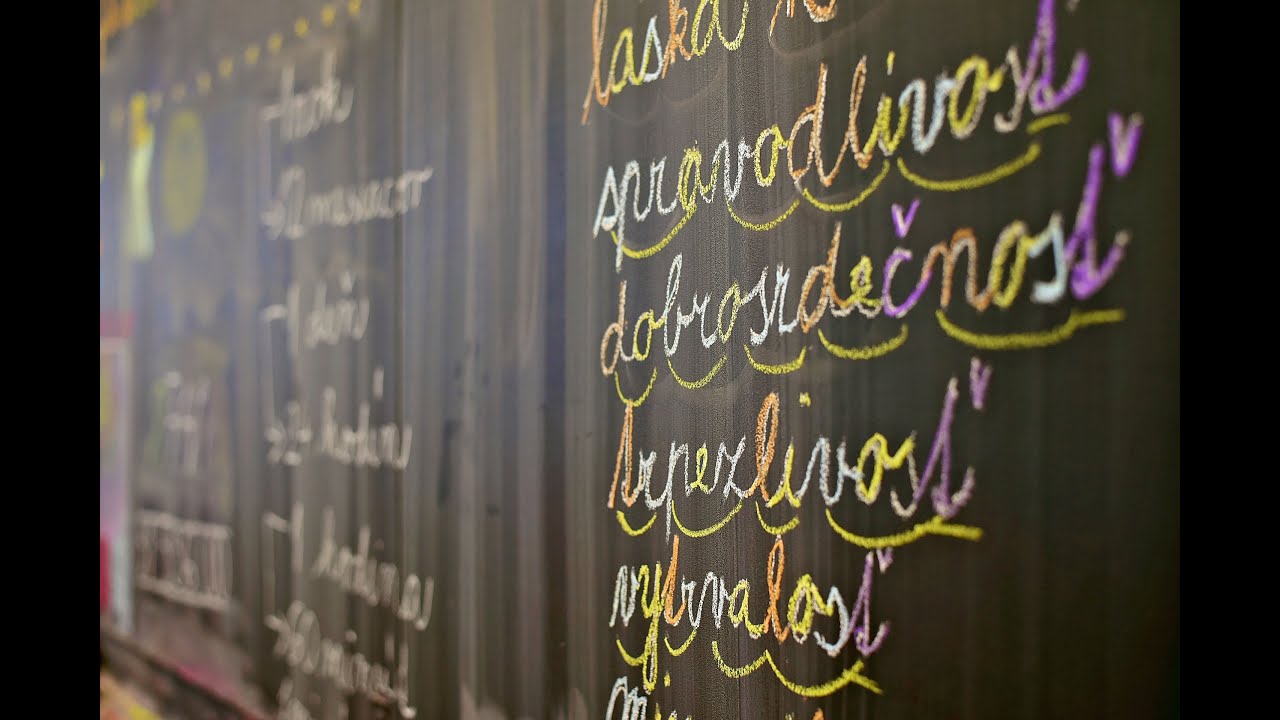 rok
12 mesiacov
1 deň
24 hodín
1 hodina
60 minút
láska
spravodlivosť
dobrosrdečnosť
trpezlivosť
vytrvalosť